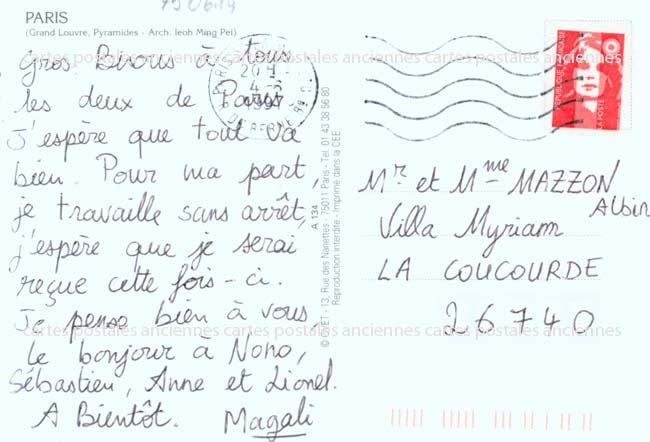 750614
PARIS
(Grand Louvre, Pyramides - Arch. Ieoh Ming Pei)
Gros Bisous à tous
les deux de Paris
J'espère que tout va
bien. Pour ma part,
je travaille sans arrêt,
j'espère que je serai
reçue cette fois-ci.
Je pense bien à vous,
le bonjour à Nono,
Sébastien, Anne et Lionel.
A Bientôt. Magali
A 134
13, Rue des Nanettes - 75011 Paris - Tél. 01 43 38 56 80
Reproduction interdite - Imprimé dans la CEE
PARIS
20H
4-2
REPUBLIQUE FRANCAISE
LA POSTE
Mr et Mme MAZZON
Albin
Villa Myriam
LA COUCOURDE
26740
cartes postales anciennes cartes postales anciennes cartes postales anciennes
cartes postales anciennes cartes postales anciennes cartes postales anciennes